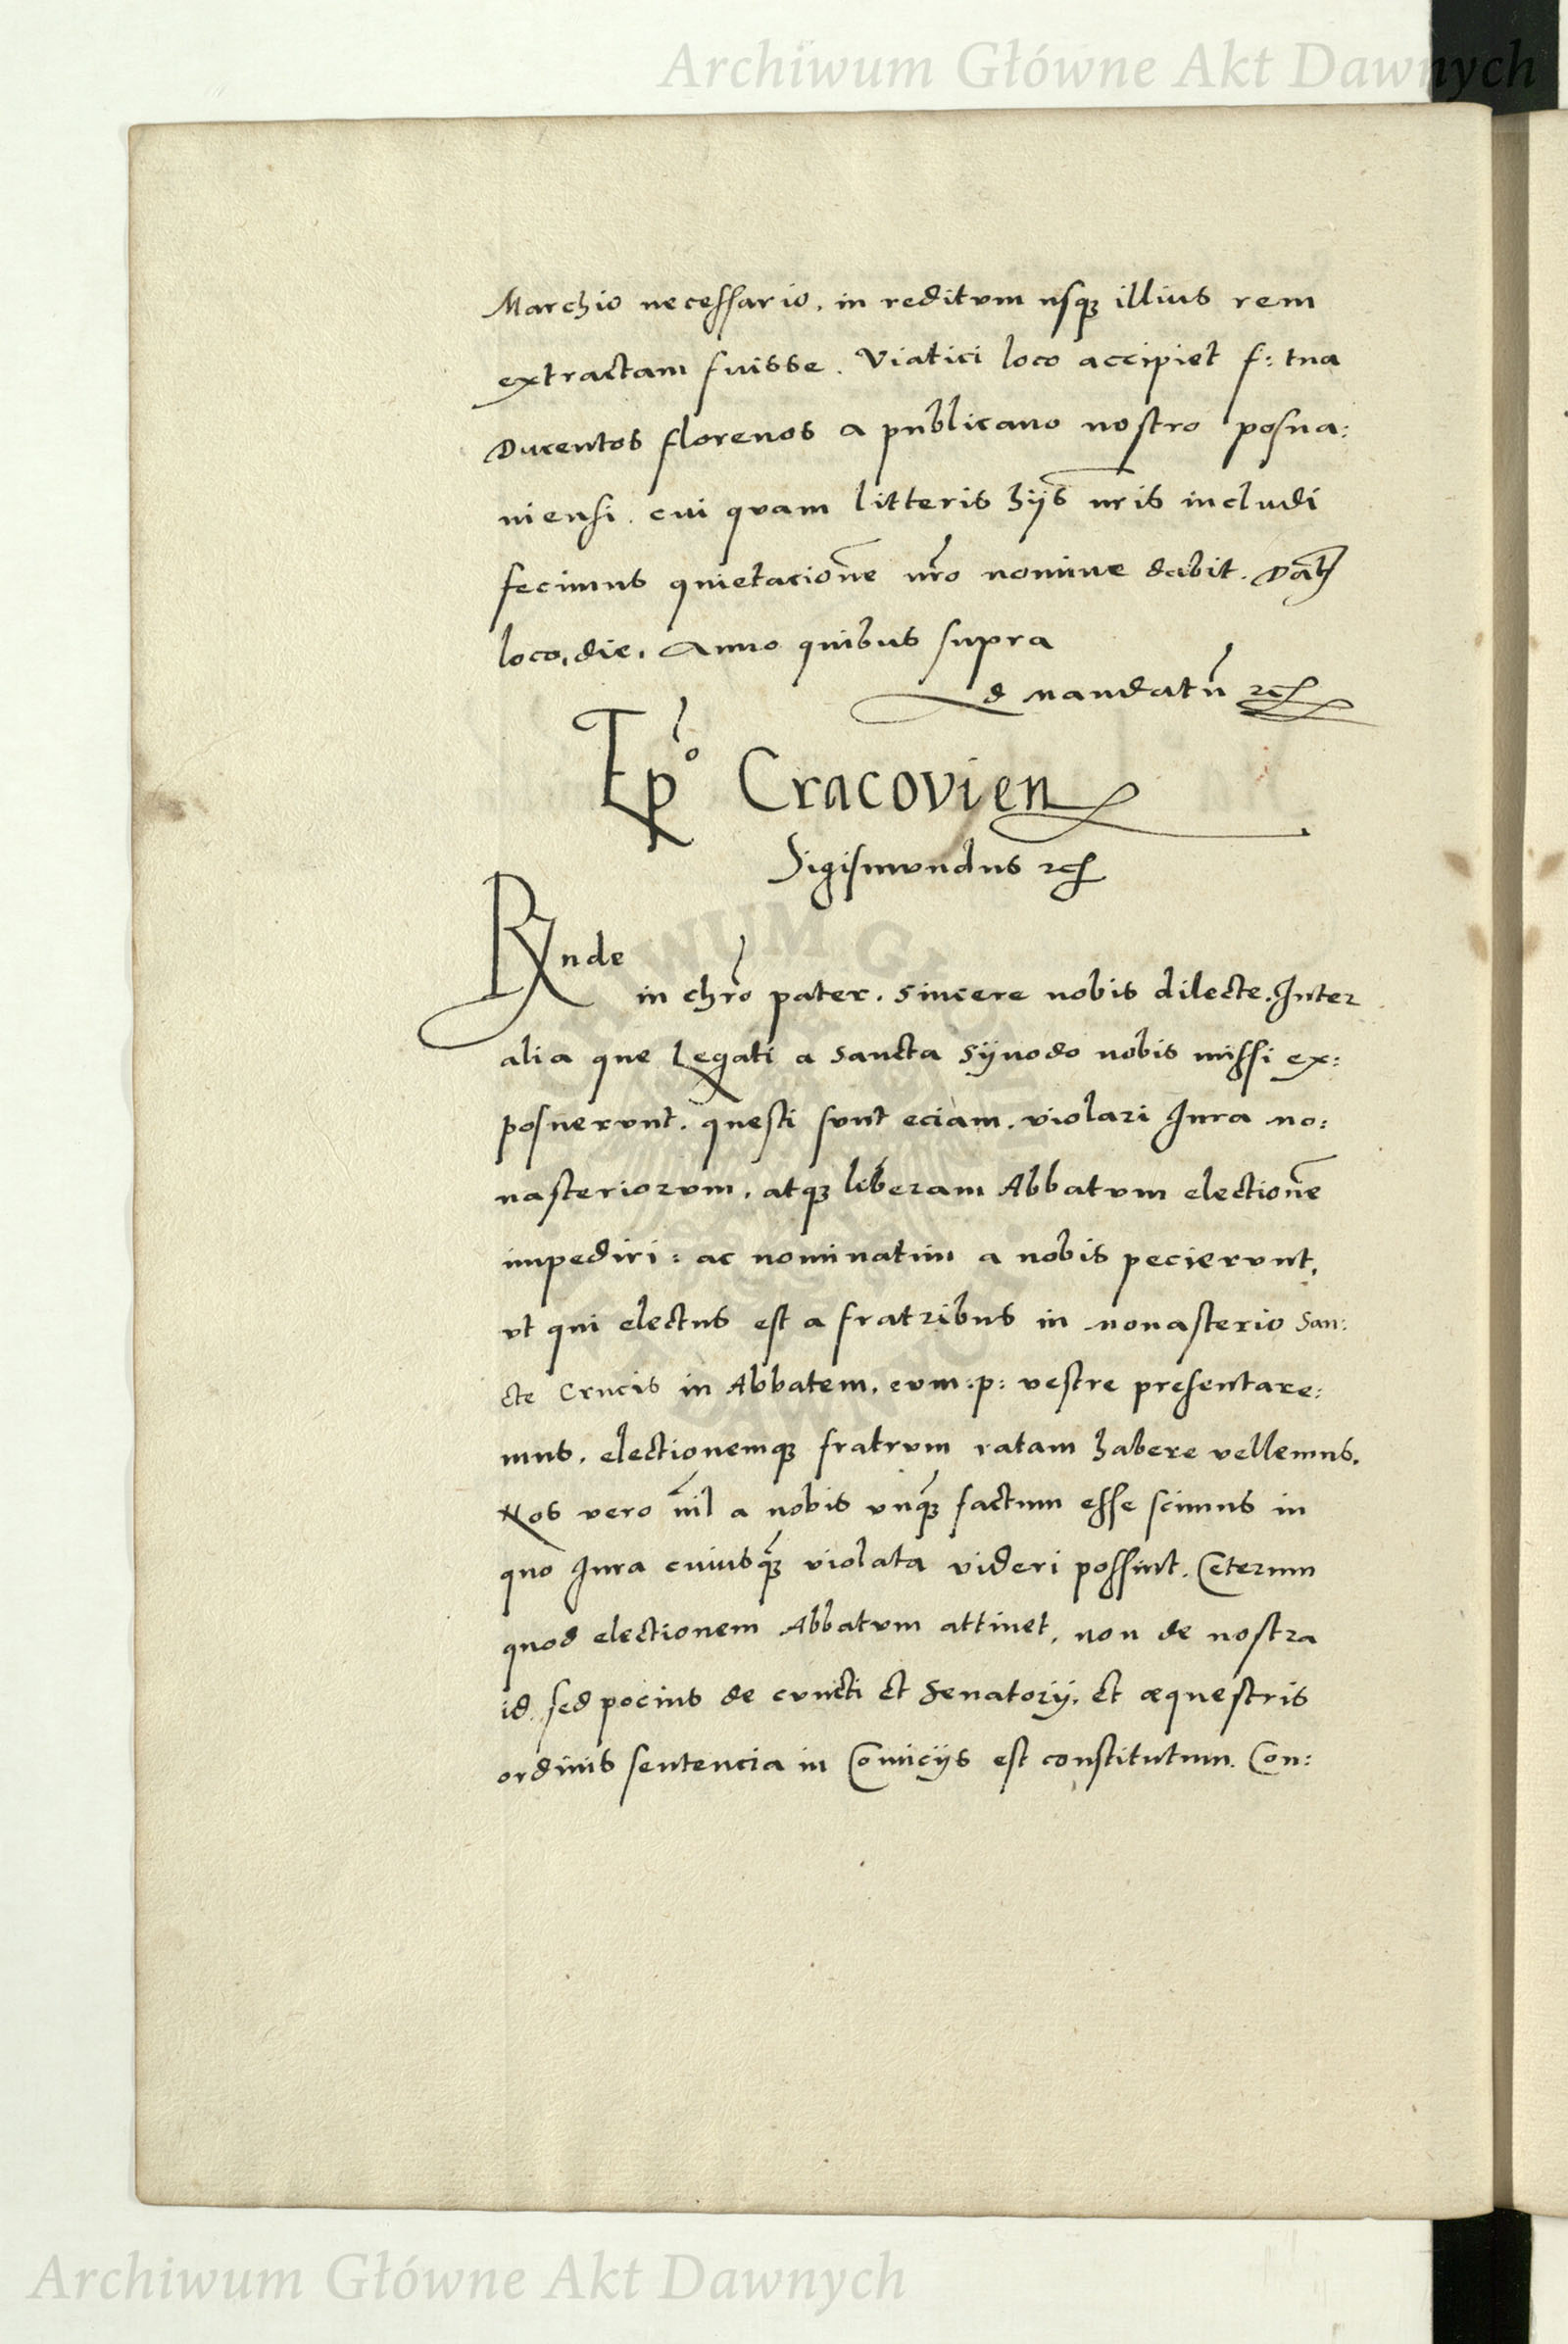 Archiwum Główne Akt Dawnych
Marchio necessario, in reditvm usq3 illius rem
extractam fuisse. Viatici loco accipiet f: tua
Ducentos florenos a publicano nostro posna:
niensi. cui qvam litteris hijs nr̄is includi
fecimus quietacionē nr̄o nomine dabit. Dat̄
loco, die, Anno quibus supra
Ad mandatū etc
Ep̄o Cracovien
Sigismvndus etc
Rnde
in chr̄o pater, sincere nobis dilecte. Inter
alia que Legati a sancta Sÿnodo nobis missi ex:
posuervnt. questi svnt eciam, violari Iura mo:
nasteriorvm, atq3 liberam Abbatvm electionē
impediri: ac nominatim a nobis peciervnt,
vt qui electus est a fratribus in monasterio San:
cte Crucis in Abbatem, evm :p: vestre presentare:
mus, electionemq3 fratrvm ratam habere vellemus.
Nos vero nīl a nobis vnq̄3 factum esse scimus in
quo Iura cuiusq̄3 violata videri possint. Ceterum
quod electionem Abbatvm attinet, non de nostra
id, sed pocius de cvncti et Senatorij, et æquestris
ordinis sentencia in Comicijs est constitutum. Con:
Archiwum Główne Akt Dawnych